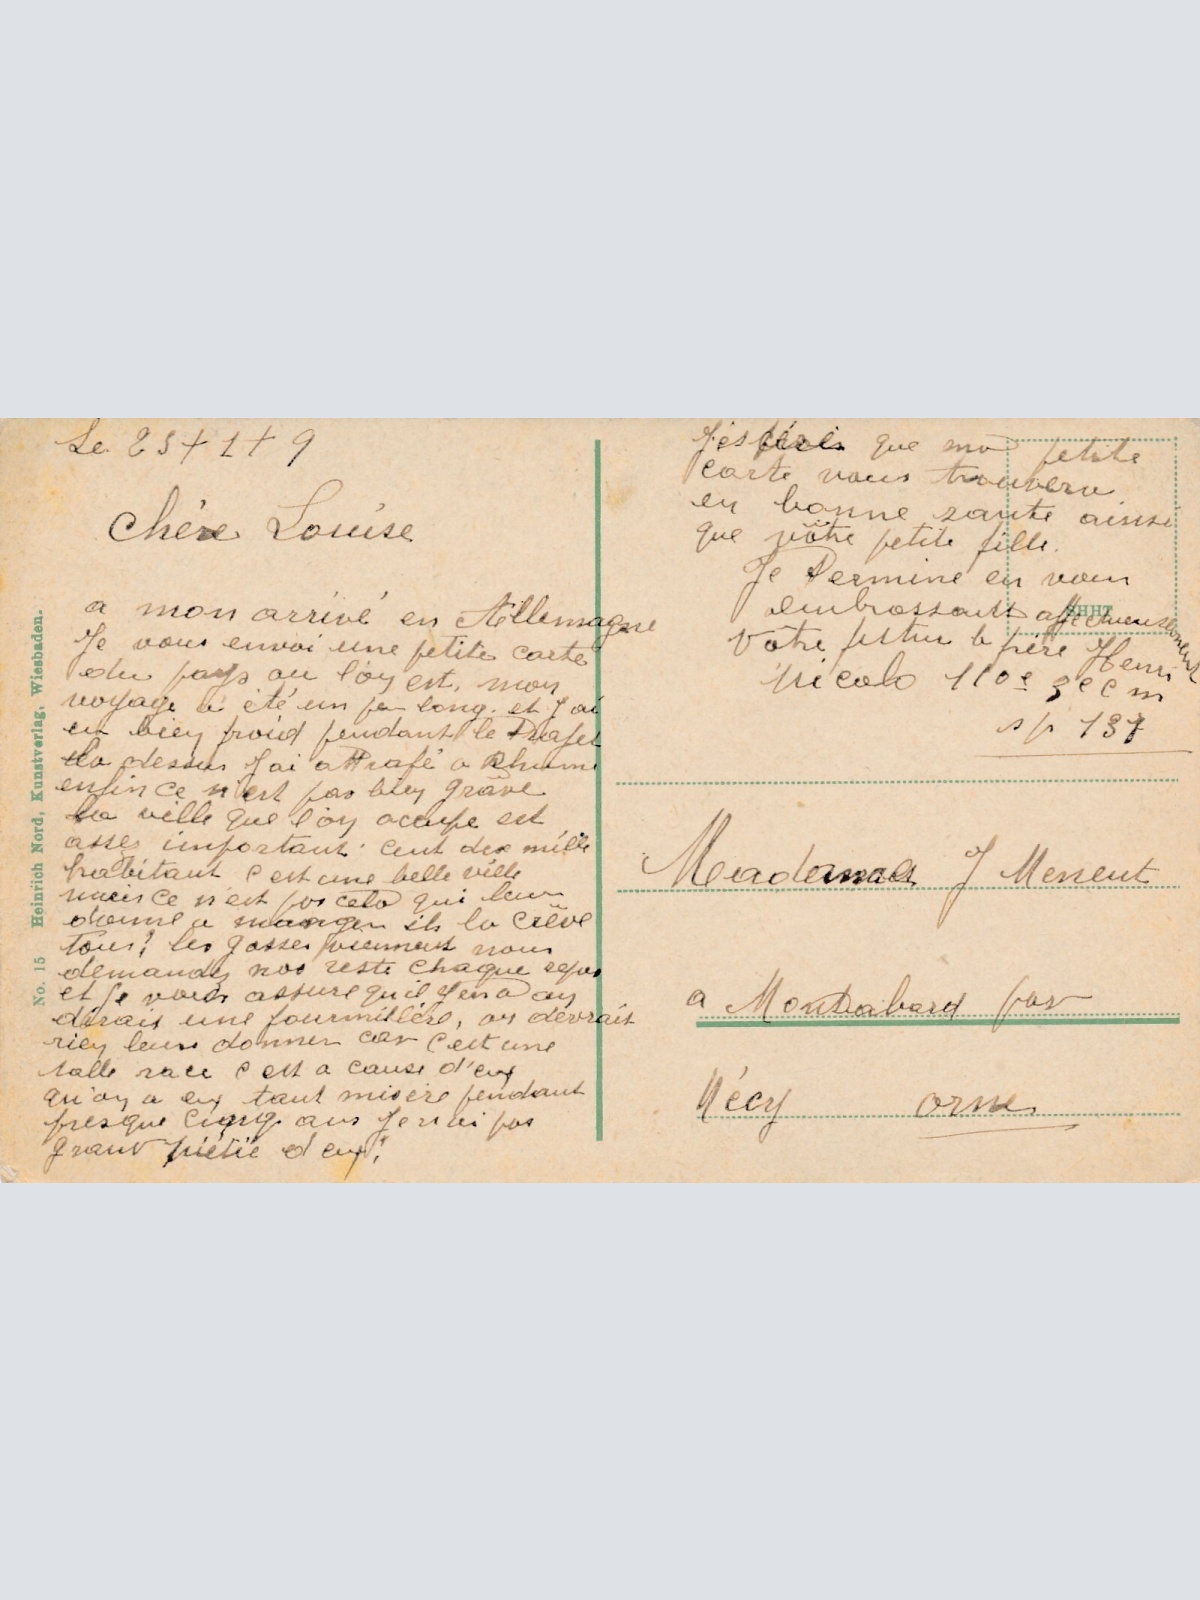 Le 23 + 1 + 9
Chère Louise
a mon arrivé en Allemagne
Je vous envoi une petite carte
du pays ou l'on est, mon
voyage a été un peu long. et J'ai
eu bien froid pendant le Trajet
la dessus J'ai attrapé a Rhume
enfin ce n'est pas bien grâve
La ville que l'on occupe est
asses important cent dix mille
habitant c'est une belle ville
mais ce n'est pas cela qui leur
donne a manger ils la crêve
tous! les gosses viennent nous
demandes nos reste chaque repas
et je vous assure qu'il y en a on
dirais une fourmillère, on devrait
rien leur donner car c'est une
salle race c'est a cause d'eux
qu'on a eu tant misère pendant
presque cinq ans Je n'ai pas
grant pietié d'eux!
J'espère que ma petite
carte vous trouvera
en bonne sante ainsi
que vôtre petite fille.
Je Termine en vous
embrassant affectueusement
Vôtre frère Henri
picolo 110e 3e c m
s p 137
Madame J Menent
a Montabard par
Nécy orne
No. 15 Heinrich Nord, Kunstverlag, Wiesbaden.